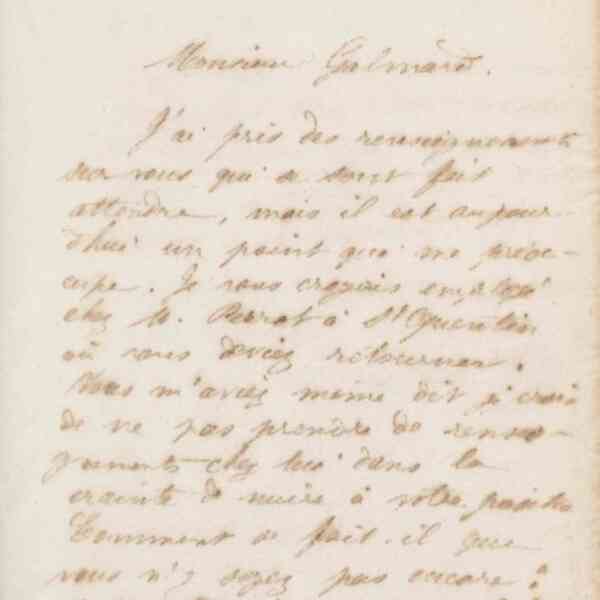 Monsieur Galmard.
J'ai pris des renseignements
sur vous qui se sont fait
attendre, mais il est aujour-
d'hui un point qui me préoc-
cupe. Je vous croyais employé
chez M. Perrot à St Quentin
où vous deviez retourner.
Vous m'aviez même dit je crois
de ne pas prendre de rensei-
gnements chez lui dans la
crainte de nuire à votre position
Comment se fait-il que
vous n'y soyez pas encore ?